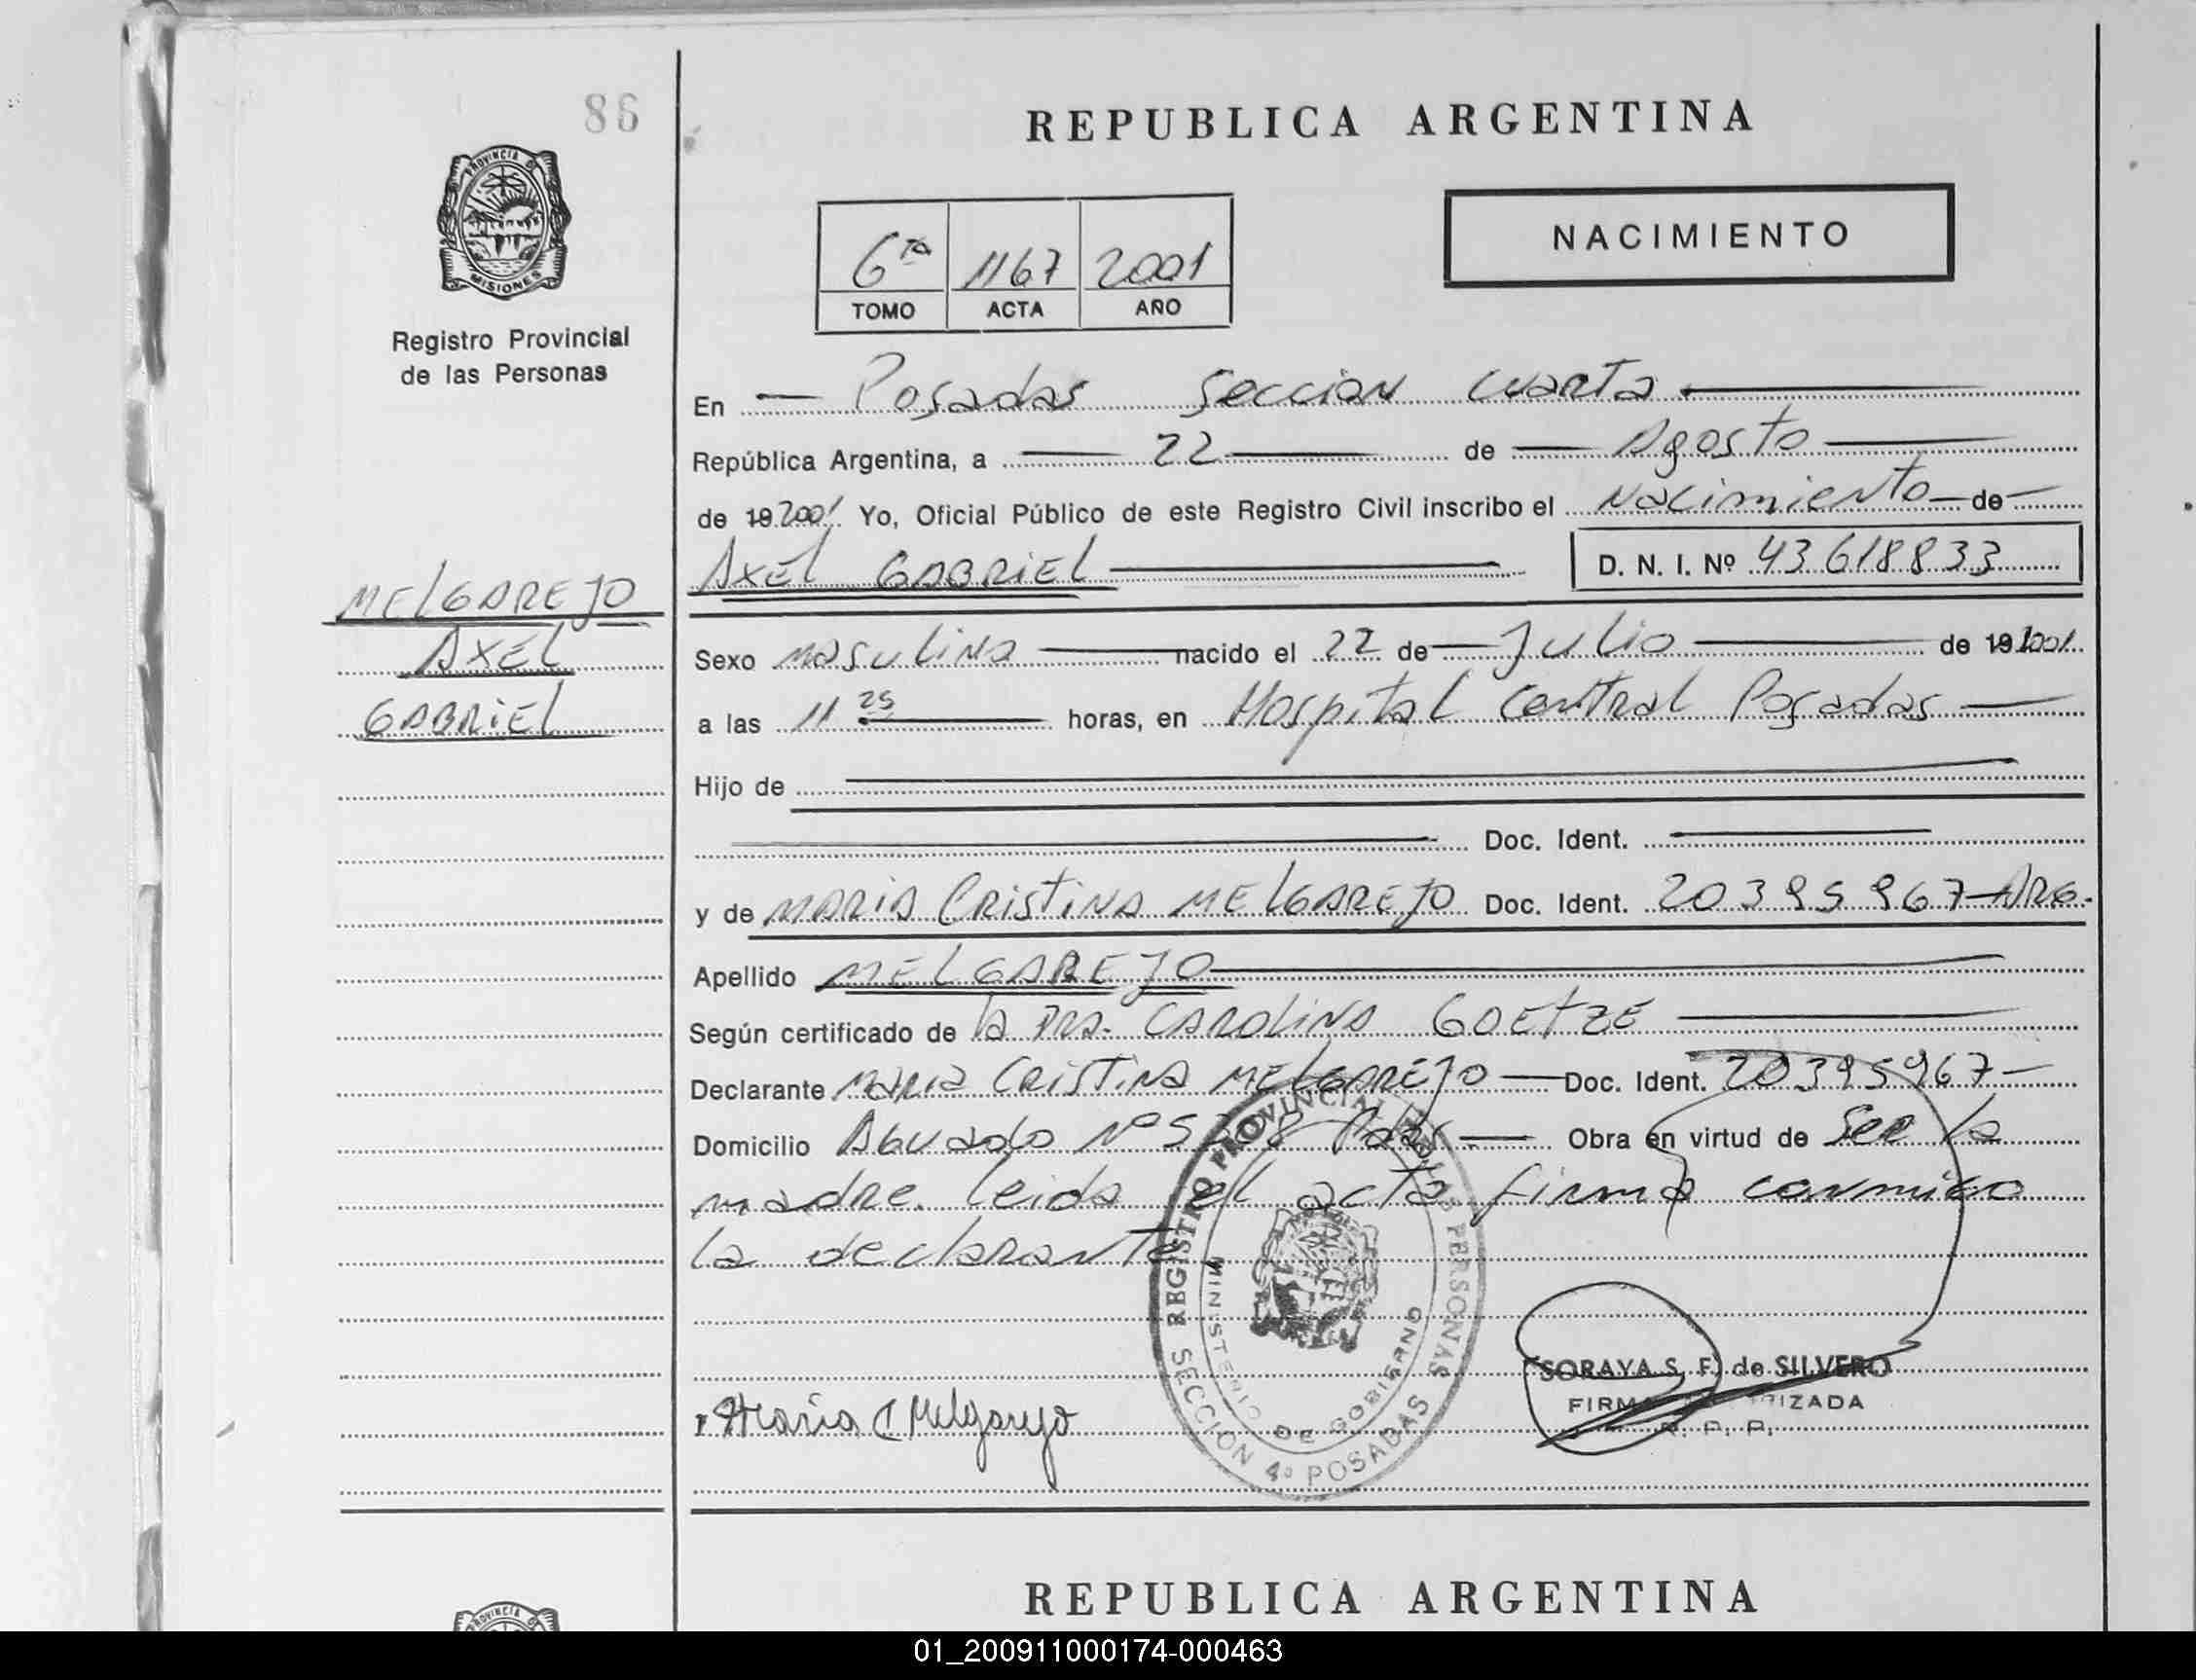 86
PROVINCIA DE
MISIONES
Registro Provincial
de las Personas
REPUBLICA ARGENTINA
6ta 1167 2001
TOMO ACTA AÑO
NACIMIENTO
En — Posadas Seccion cuarta.
República Argentina, a — 22 — de — Agosto —
de 19 2001. Yo, Oficial Público de este Registro Civil inscribo el Nacimiento — de —
AXEL GABRIEL — D. N. I. Nº 43618833
MELGAREJO
AXEL
GABRIEL
Sexo masulino — nacido el 22 de — Julio — de 19 2001.
a las 11 25 — horas, en Hospital Central Posadas —
Hijo de —
— Doc. Ident. —
y de MARIA CRistiNA MELGAREJO Doc. Ident. 20395967-ARG.
Apellido MELGAREJO —
Según certificado de la DRA. CAROLINA GOETZE —
Declarante MARIA CRISTINA MELGAREJO — Doc. Ident. 20395967 —
Domicilio Aguado Nº Pdas. — Obra en virtud de Ser la
madre. leida el acta firma conmigo
la declarante
REGISTRO PROVINCIAL DE LAS PERSONAS
MINISTERIO DE GOBIERNO
SECCION 4º POSADAS
María C Melgarejo
SORAYA S. F. de SILVERO
FIRMA AUTORIZADA
R. P. P.
REPUBLICA ARGENTINA
PROVINCIA DE
01_200911000174-000463